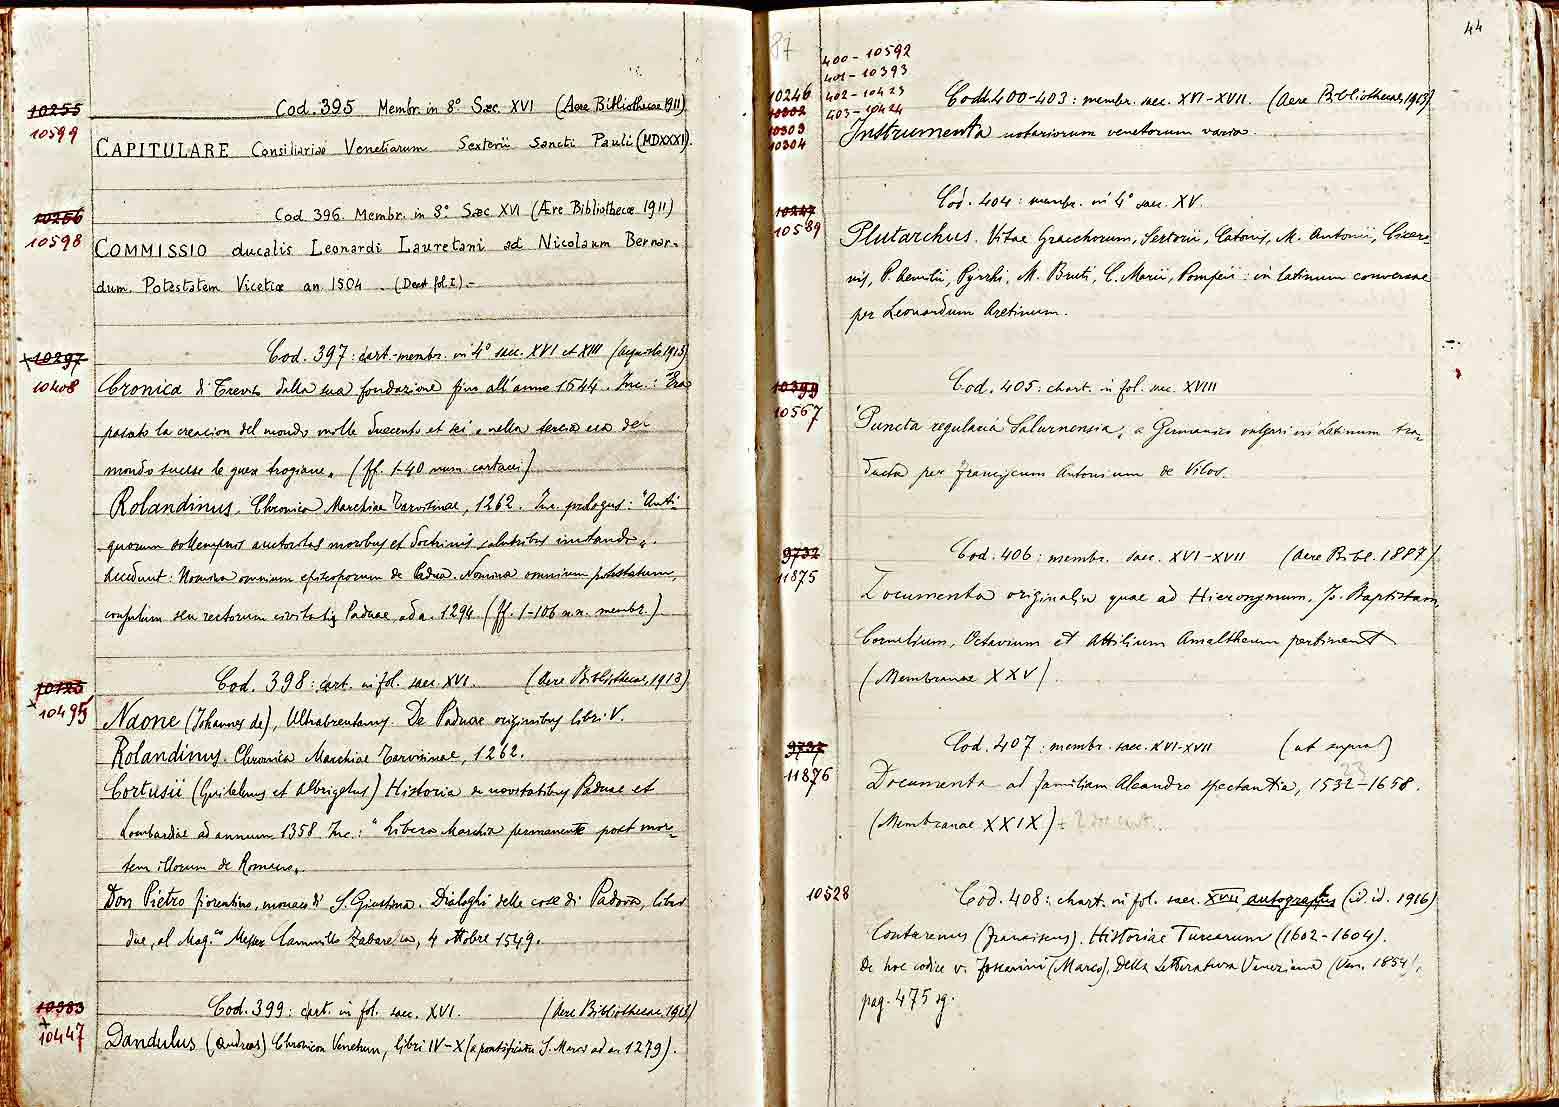 10255
10599
Cod. 395 Membr. in 8° Sæc. XVI (Aere Bibliothecae 1911)
CAPITULARE Consiliariae Venetiarum Sexterii Sancti Pauli (MDXXXI).
10256
10598
Cod. 396. Membr. in 8° Sæc XVI (Ære Bibliothecæ 1911)
COMMISSIO ducalis Leonardi Lauretani ad Nicolaum Bernar-
dum. Potestatem Vicetiæ an 1504 . (Deest fol. I). -
10297
10408
Cod. 397: cart.-membr. in 4° saec. XVI et XIII (acquisto 1913)
Cronica di Treviso dalla sua fondazione fino all'anno 1544. Inc.: "Era
passato la creacion del mondo mille duecento et sei e nella terza era del
mondo successe le guere trogiane„ (ff. 1-40 num. cartacei)
Rolandinus. Chronica Marchiae Tarvisinae, 1262. Inc. prologus: "Anti-
quorum sollempnis auctoritas moribus et doctrinis salutribus imitanda„.
Accedunt: Nomina omnium episcoporum de Padua. Nomina omnium potestatum,
consulum seu rectorum civitatis Paduae, ad a. 1294 (ff. 1-106 n.n. membr.)
10123
10495
Cod. 398: cart. in fol. saec. XVI. (Aere Bibliothecae, 1913)
Naone (Johannes de), Ultrabrentanus. De Paduae originibus libri V.
Rolandinus. Chronica Marchiae Tarvisinae, 1262.
Cortusii (Guilelmus et Albrigetus) Historia de novitatibus Paduae et
Lombardiae ad annum 1358 Inc.: "Libera Marchia permanente post mor-
tem illorum de Romano„.
Don Pietro fiorentino, monaco di S. Giustina. Dialoghi delle cose di Padova, libri
due, al Mag.co Messer Cammillo Zabarella, 4 ottobre 1549.
10383
10447
Cod. 399: cart. in fol. saec. XVI. (Aere Bibliothecae 1913)
Dandulus (Andreas) Chronicon Venetum, libri IV-X (a pontificatu S. Marci ad an 1279).
44
87
400 - 10592
401 - 10393
402 - 10423
403 - 10424
10246
10302
10303
10304
Codd. 400-403: membr. saec. XVI-XVII. (Aere Bibliothecae, 1913)
Instrumenta notariorum venetorum varia.
10247
10589
Cod. 404: membr. in 4° saec. XV.
Plutarchus. Vitae Gracchorum, Sertorii, Catonis, M. Antonii, Cicero-
nis, P. Aemilii, Pyrrhi, M. Bruti, C. Marii, Pompeii: in latinum conversae
per Leonardum Aretinum.
10399
10567
Cod. 405: chart. in fol. saec. XVIII
"Puncta regularia Salurnensia„ a Germanico vulgari in Latinum tra-
ducta per Franciscum Antonium de Vilos.
9732
11875
Cod. 406: membr. saec. XVI-XVII (Aere Bibl. 1887)
Documenta originalia quae ad Hieronymum, Jo. Baptistam,
Cornelium, Octavium et Attilium Amaltheum pertinent
(Membranae XXV).
9737
11876
Cod. 407: membr. saec. XVI-XVII (ut supra)
Documenta ad familiam Aleandro spectantia, 1532-1658.
(Membranae XXIX) + 2 doc. cart.
10528
Cod. 408: chart. in fol. saec. XVII autographus (id. id. 1916)
Contarenus (Franciscus). Historiae Turcarum (1602-1604).
De hoc codice v. Foscarini (Marco), Della Letteratura Veneziana (Ven. 1854),
pag. 475 sg.